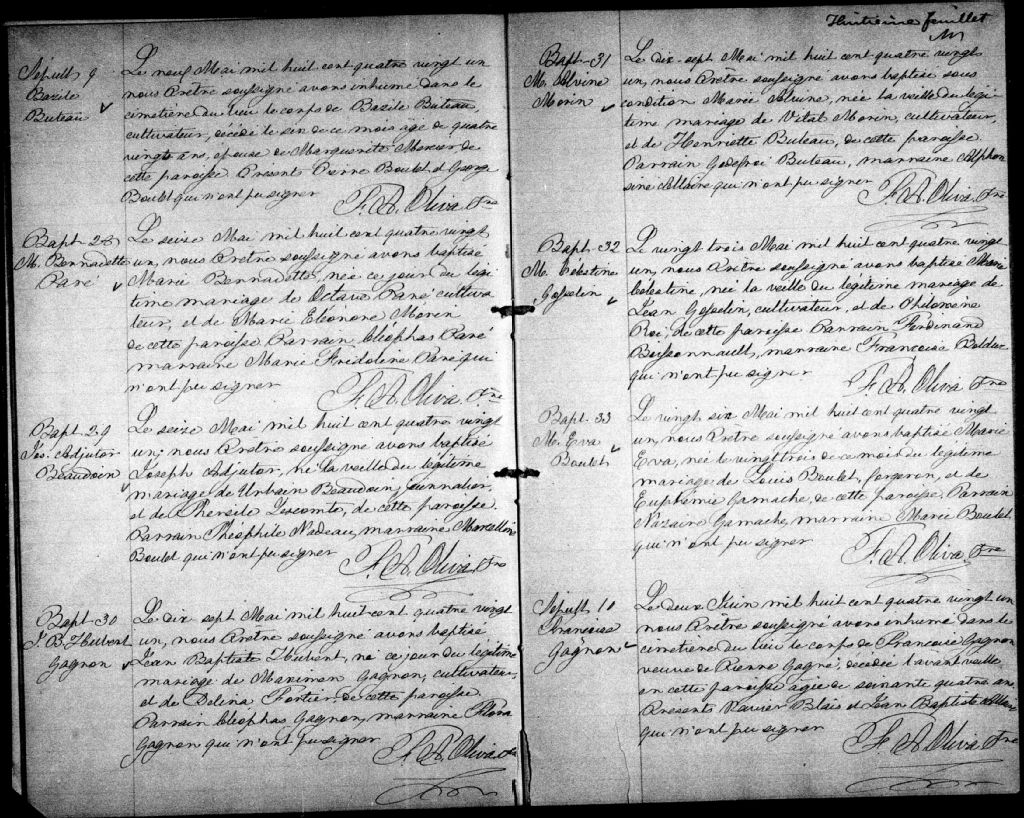 Sepult 9
Bazile
Buteau
Le neuf Mai mil huit cent quatre vingt un
nous Prêtre soussigné avons inhumé dans le
cimetière du lieu le corps de Bazile Buteau
cultivateur, décédé le six de ce mois âgé de quatre
vingts ans, époux de Marguerite Mercier de
cette paroisse Present Pierre Boulet et George
Boulet qui n'ont pu signer
F. A. Oliva Ptre
Bapt 28
M. Bernadette
Paré
Le seize Mai mil huit cent quatre vingt
un, nous Prêtre soussigné avons baptisé
Marie Bernadette, née ce jour du légi
time mariage de Octave Paré cultiva
teur, et de Marie Eleonore Morin
de cette paroisse Parrain Cléophas Paré
marraine Marie Fridoline Paré qui
n'ont pu signer
F. A. Oliva Ptre
Bapt 29
Jos. Adjutor
Beaudoin
Le seize Mai mil huit cent quatre vingt
un, nous Prêtre soussigné avons baptisé
Joseph Adjutor, né la veille du légitime
mariage de Urbain Beaudoin journalier,
et de Thersile Lecomte, de cette paroisse
Parrain Théophile Nadeau, marraine Marcelline
Boulet qui n'ont pu signer
F. A. Oliva Ptre
Bapt 30
J. B. Hubert
Gagnon
Le dix sept Mai mil huit cent quatre vingt
un, nous Prêtre soussigné avons baptisé
Jean Baptiste Hubert, né ce jour du légitime
mariage de Maximin Gagnon, cultivateur,
et de Delina Fortier de cette paroisse
Parrain Cléophas Gagnon, marraine Flora
Gagnon qui n'ont pu signer
F. A. Oliva Ptre
Huitième feuillet
Bapt 31
M. Alvine
Morin
Le dix-sept Mai mil huit cent quatre vingt
un, nous Prêtre soussigné avons baptisé sous
condition Marie Alvine, née la veille du légi
time mariage de Vital Morin, cultivateur,
et de Henriette Buteau, de cette paroisse
Parrain Godefroi Buteau, marraine Alphon
sine Allaire qui n'ont pu signer
F. A. Oliva Ptre
Bapt 32
M. Célestine
Gosselin
Le vingt trois Mai mil huit cent quatre vingt
un, nous Prêtre soussigné avons baptisé Marie
Célestine, née la veille du légitime mariage de
Jean Gosselin, cultivateur, et de Philomène
Roi, de cette paroisse Parrain Ferdinand
Boissonnault, marraine Françoise Bolduc
qui n'ont pu signer
F. A. Oliva Ptre
Bapt 33
M. Eva
Boulet
Le vingt six Mai mil huit cent quatre vingt
un, nous Prêtre soussigné avons baptisé Marie
Eva, née le vingt trois de ce mois du légitime
mariage de Louis Boulet, forgeron, et de
Euphémie Gamache, de cette paroisse Parrain
Nazaire Gamache, marraine Marie Boulet
qui n'ont pu signer
F. A. Oliva Ptre
Sepult 10
Françoise
Gagnon
Le deux Juin mil huit cent quatre vingt un
nous Prêtre soussigné avons inhumé dans le
cimetière du lieu le corps de Françoise Gagnon
veuve de Pierre Gagné, décédée l'avant veille
en cette paroisse agée de soixante quatre ans
Presents Xavier Blais et Jean Baptiste
qui n'ont pu signer
F. A. Oliva Ptre